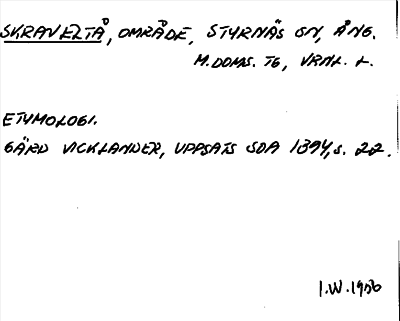 SKRAVELTÅ, OMRÅDE, STYRNÄS SN, ÅNG.
M. DOMS. TG, VRNL. L.
ETYMOLOGI.
GÄRD VICKLANDER, UPPSATS SOA 1394, S. 22.
I.W. 1986